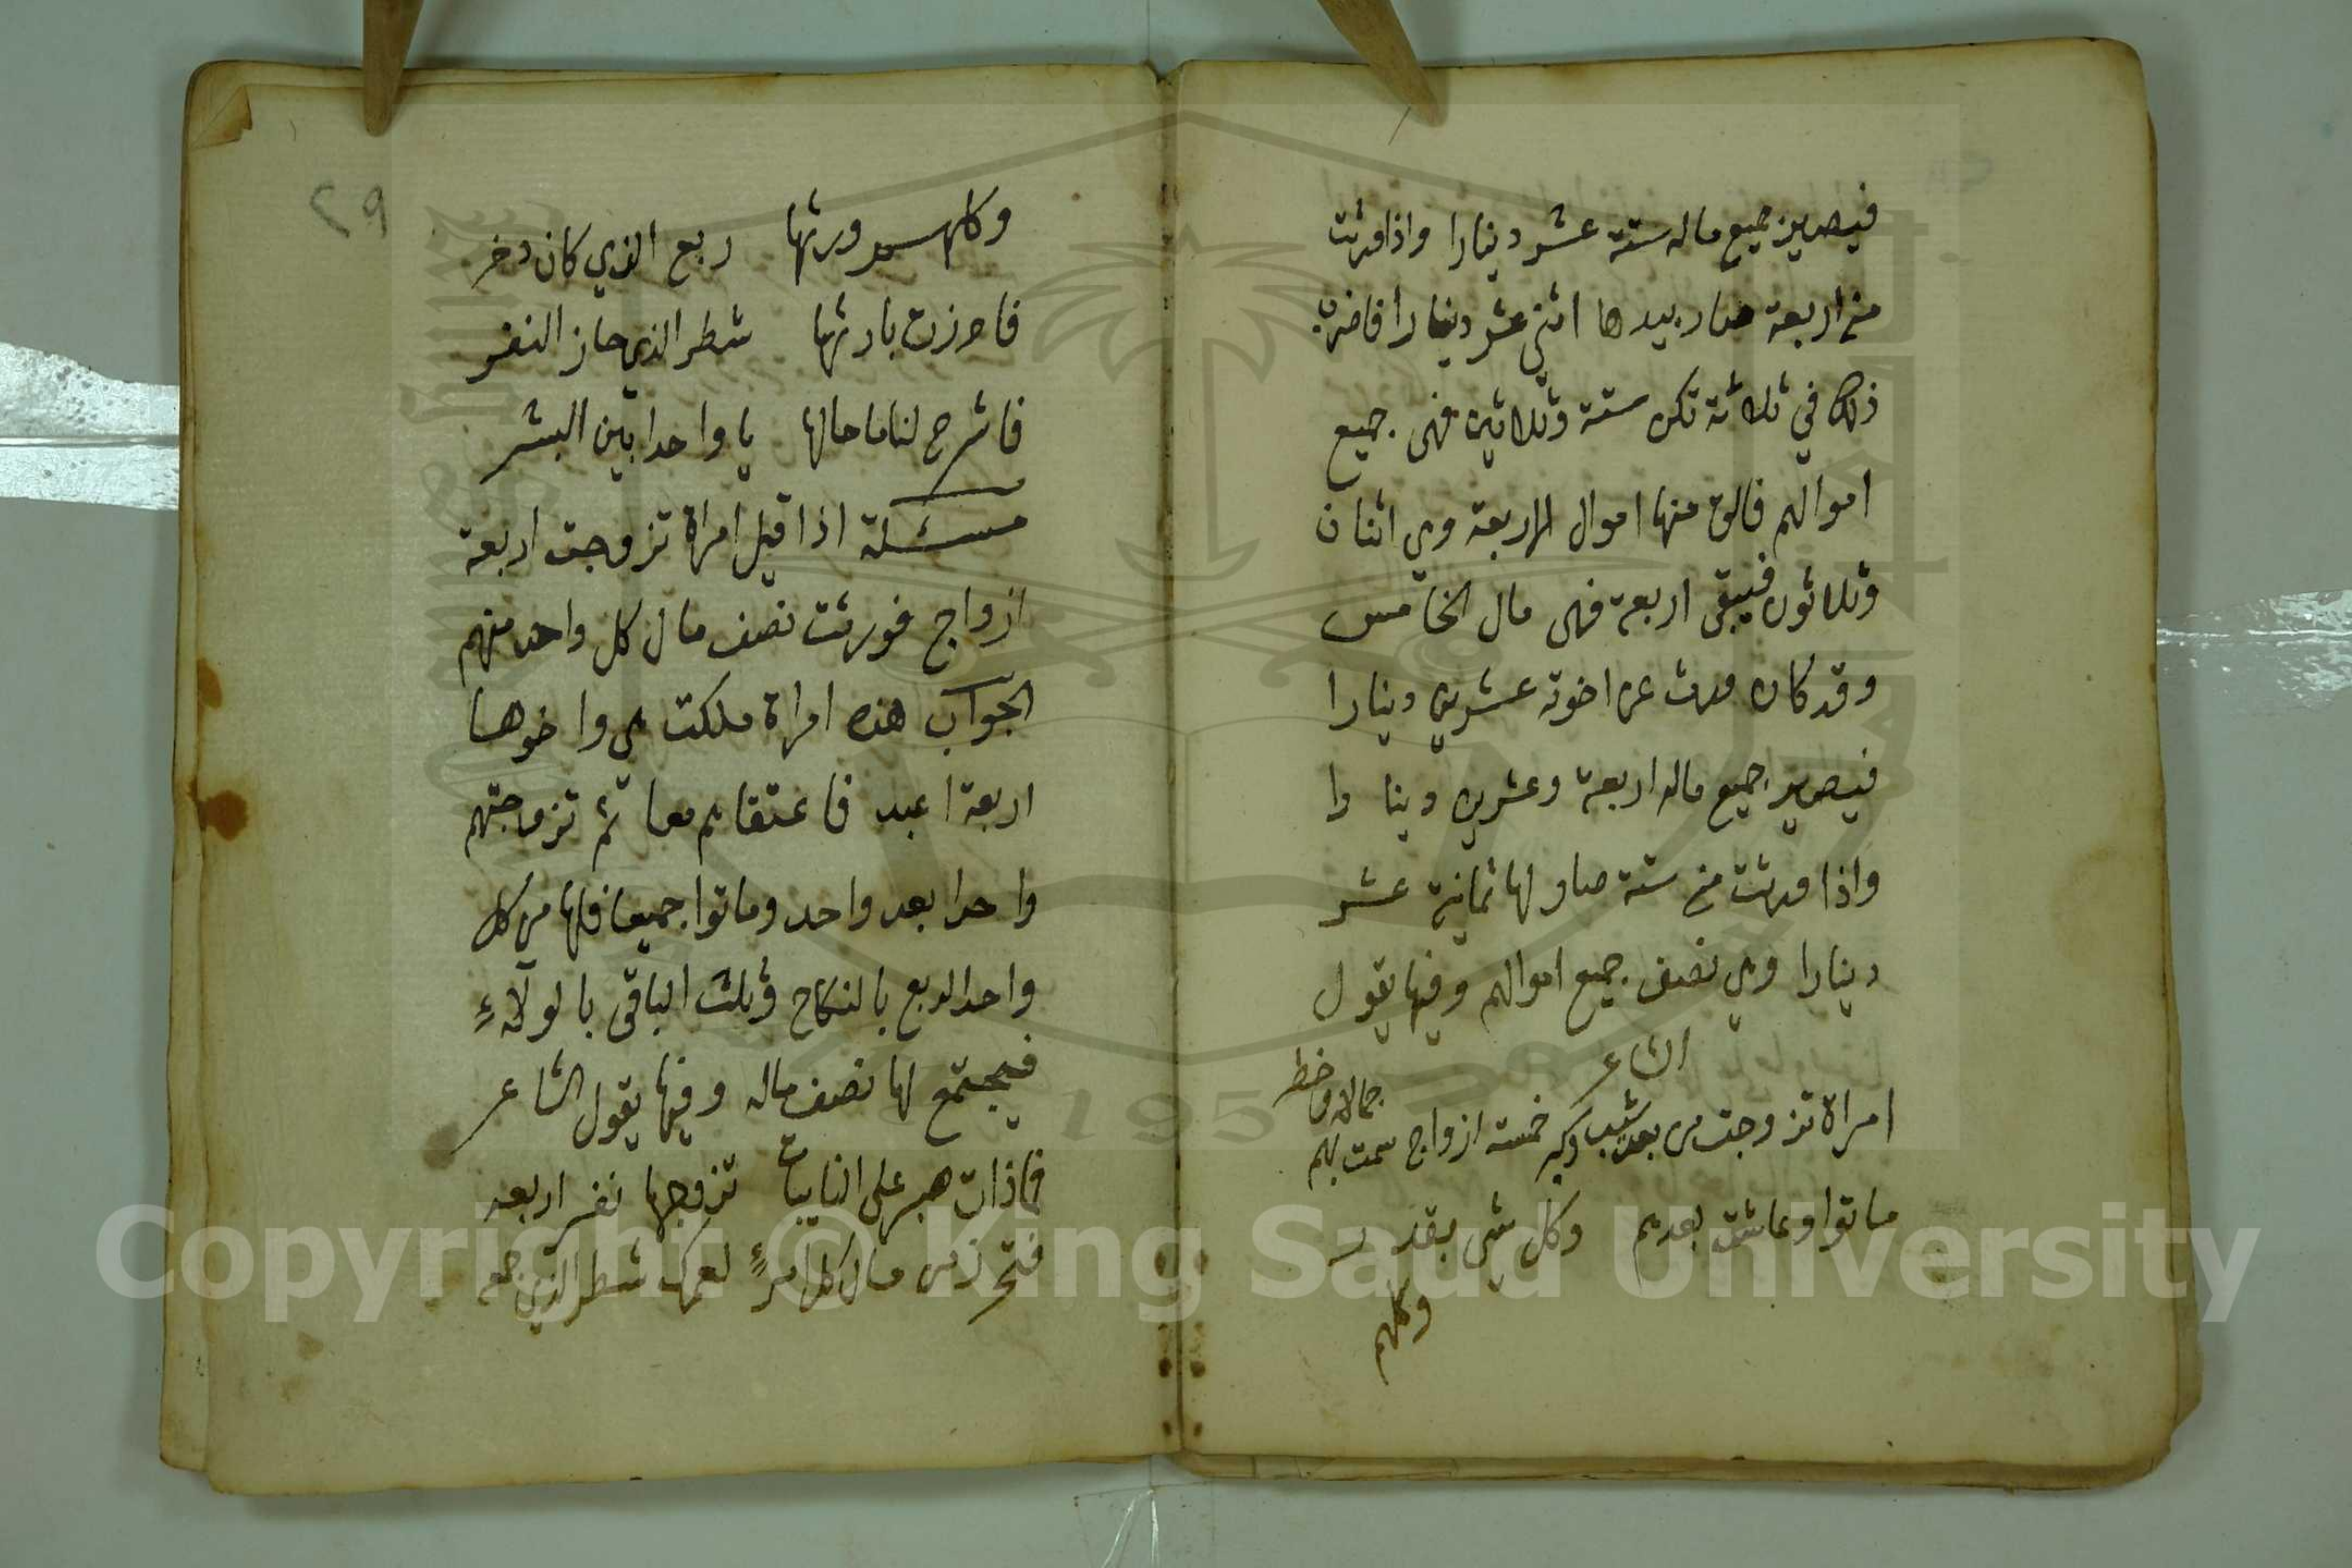 فيصير جميع ماله ستة عشر دينارا واذا ورثت
من اربعة صار بيدها اثني عشر دينارا فاضرب
ذلك في ثلاثة تكن ستة وثلاثين فهى جميع
اموالهم فالق منها اموال الاربعة وهي اثنان
وثلاثون فيبقى اربعة فهى مال الخامس
وقد كان ورث عن اخوته عشرين دينارا
فيصير جميع ماله اربعة وعشرين دينارا
واذا ورثت من ستة صار لها ثمانية عشر
دينارا وهي نصف جميع اموالهم وفيها يقول
الشاعر
امراة تزوجت من بعد شيب وكبر خمسة ازواج سمت بهم
جمالا وخطر
ماتوا وعاشت بعدهم وكل شى بقدر
وكلهم
29
وكلهم ورثها ربع الذي كان دخر
فاحرزت بارثها شطر الذي حاز النفر
فاشرح لنا ما حالها يا واحدا بين البشر
مسئلة اذا قيل امراة تزوجت اربعة
ازواج فورثت نصف مال كل واحد منهم
الجواب هذه امراة ملكت هي واخوها
اربعة اعبد فاعتقاهم معا ثم تزوجتهم
واحدا بعد واحد وماتوا جميعا فلها من كل
واحد الربع بالنكاح وثلث الباقى بالولاء
فيجتمع لها نصف ماله وفيها يقول الشاعر
فماذات صبر على النايبات تزوجها نفر اربعه
فتحرز من مال كل امرء لعمرك شطر الذي جمعه
Copyright © King Saud University
195